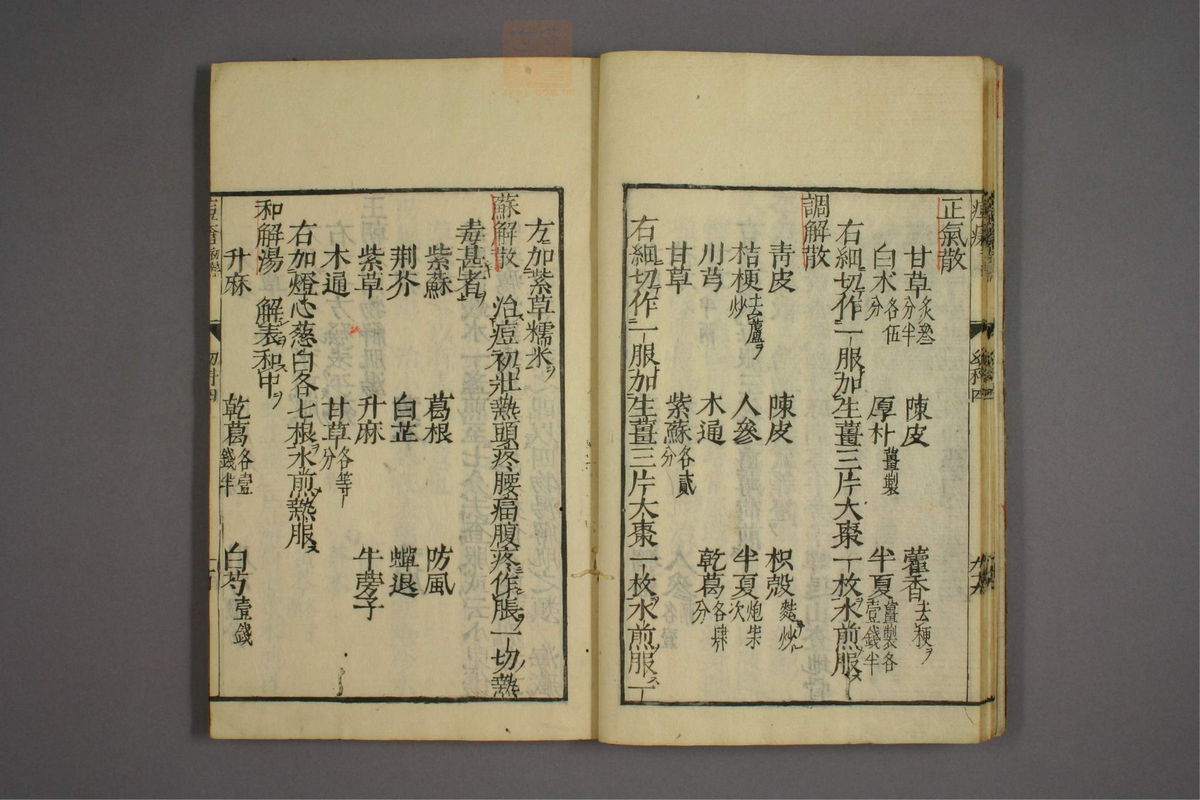 正氣散
甘草炙叁分半 陳皮 藿香去梗ヲ
白朮各伍分 厚朴薑製 半夏薑製各壹錢半
右細切作一服加生薑三片大棗一枚水煎服ス
調解散
青皮 陳皮 枳殼麩炒
桔梗去蘆ヲ炒 人參 半夏炮柒次
川芎 木通 乾葛各肆分
甘草 紫蘇各貳分
右細切作一服加生薑三片大棗一枚水煎服一
方加紫草糯米ヲ
蘇解散 治痘初壯熱頭疼腰痛腹疼作脹一切熱
毒甚者ヲ
紫蘇 葛根 防風
荆芥 白芷 蟬退
紫草 升麻 牛蒡子
木通 甘草各等分
右加燈心蔥白各七根水煎熱服ス
和解湯 解表和中ヲ
升麻 乾葛各壹錢半 白芍壹錢